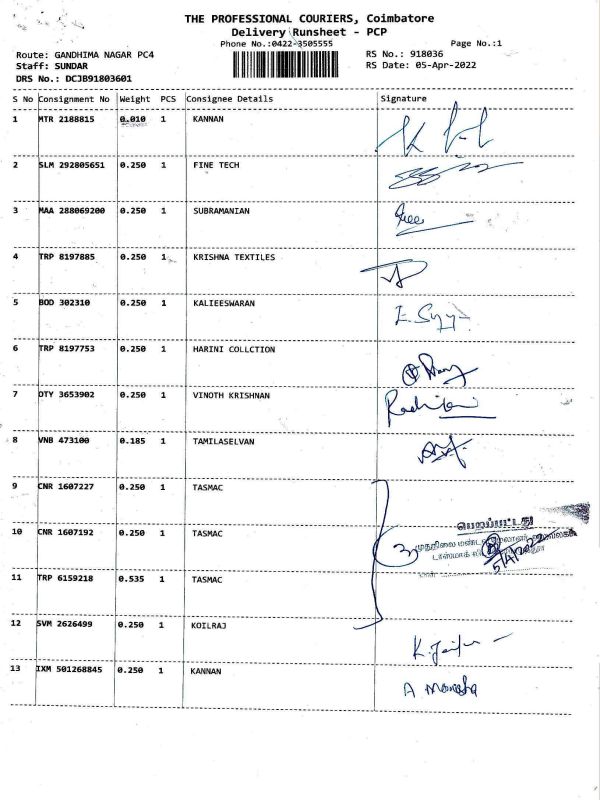 THE PROFESSIONAL COURIERS, Coimbatore
Delivery Runsheet - PCP
Phone No.:0422-3505555 Page No.:1
Route: GANDHIMA NAGAR PC4 RS No.: 918036
Staff: SUNDAR RS Date: 05-Apr-2022
DRS No.: DCJB91803601
S No Consignment No Weight PCS Consignee Details Signature
1 MTR 2188815 0.010 1 KANNAN
2 SLM 292805651 0.250 1 FINE TECH
3 MAA 288069200 0.250 1 SUBRAMANIAN
4 TRP 8197885 0.250 1 KRISHNA TEXTILES
5 BOD 302310 0.250 1 KALIEESWARAN
6 TRP 8197753 0.250 1 HARINI COLLCTION
7 OTY 3653902 0.250 1 VINOTH KRISHNAN
8 VNB 473100 0.185 1 TAMILASELVAN
9 CNR 1607227 0.250 1 TASMAC
பெறப்பட்டது
10 CNR 1607192 0.250 1 TASMAC 3
11 TRP 6159218 0.535 1 TASMAC
12 SVM 2626499 0.250 1 KOILRAJ
13 IXM 501268845 0.250 1 KANNAN